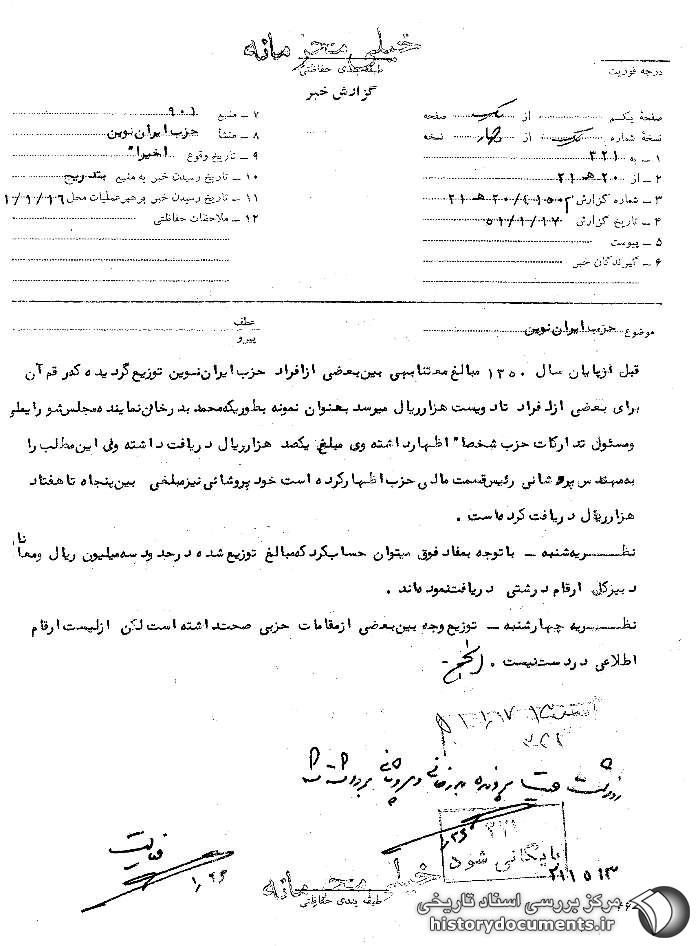 خیلی محرمانه
طبقه بندی حفاظتی
گزارش خبر
درجه فوریت
صفحهٔ یکم یک از یک صفحه
نسخهٔ شماره یک از چهار نسخه
۱ – به ۳۲۱
۲ – از ۲۰ هـ ۲۱
۳ – شماره گزارش
۴ – تاریخ گزارش ۵۱/۱/۱۷
۵ – پیوست
۶ – گیرندگان خبر
۷ – منبع ۹۰۱
۸ – منشأ حزب ایران نوین
۹ – تاریخ وقوع اخیراً
۱۰ – تاریخ رسیدن خبر به منبع بتدریج
۱۱ – تاریخ رسیدن خبر برهبر عملیات محل ۱/۱/۱۶
۱۲ – ملاحظات حفاظتی
موضوع حزب ایران نوین
عطف
پیرو
قبل از پایان سال ۱۳۵۰ مبالغ معتنابهی بین بعضی از افراد حزب ایران نوین توزیع گردیده که رقم آن
برای بعضی از افراد تا دویست هزار ریال میرسد بعنوان نمونه بطوریکه محمد بدرخانی نماینده مجلس شورایملی
و مسئول تدارکات حزب شخصاً اظهار داشته وی مبلغ یکصد هزار ریال دریافت داشته ولی این مطلب را
به مهندس پروشانی رئیس قسمت مالی حزب اظهار کرده است خود پروشانی نیز مبلغی بین پنجاه تا هفتاد
هزار ریال دریافت کرده است .
نظریه شنبه – با توجه بمفاد فوق میتوان حساب کرد که مبالغ توزیع شده در حدود سه میلیون ریال و معاونان
دبیرکل ارقام درشتی دریافت نموده اند .
نظریه چهارشنبه – توزیع وجه بین بعضی از مقامات حزبی صحت داشته است لکن از لیست ارقام
اطلاعی در دست نیست .
۳۲۱
بایگانی شود
۲۱۱۵۱۳
۱٫۲۶
۱٫۲۶
خیلی محرمانه
طبقه بندی حفاظتی
مرکز بررسی اسناد تاریخی
historydocuments.ir